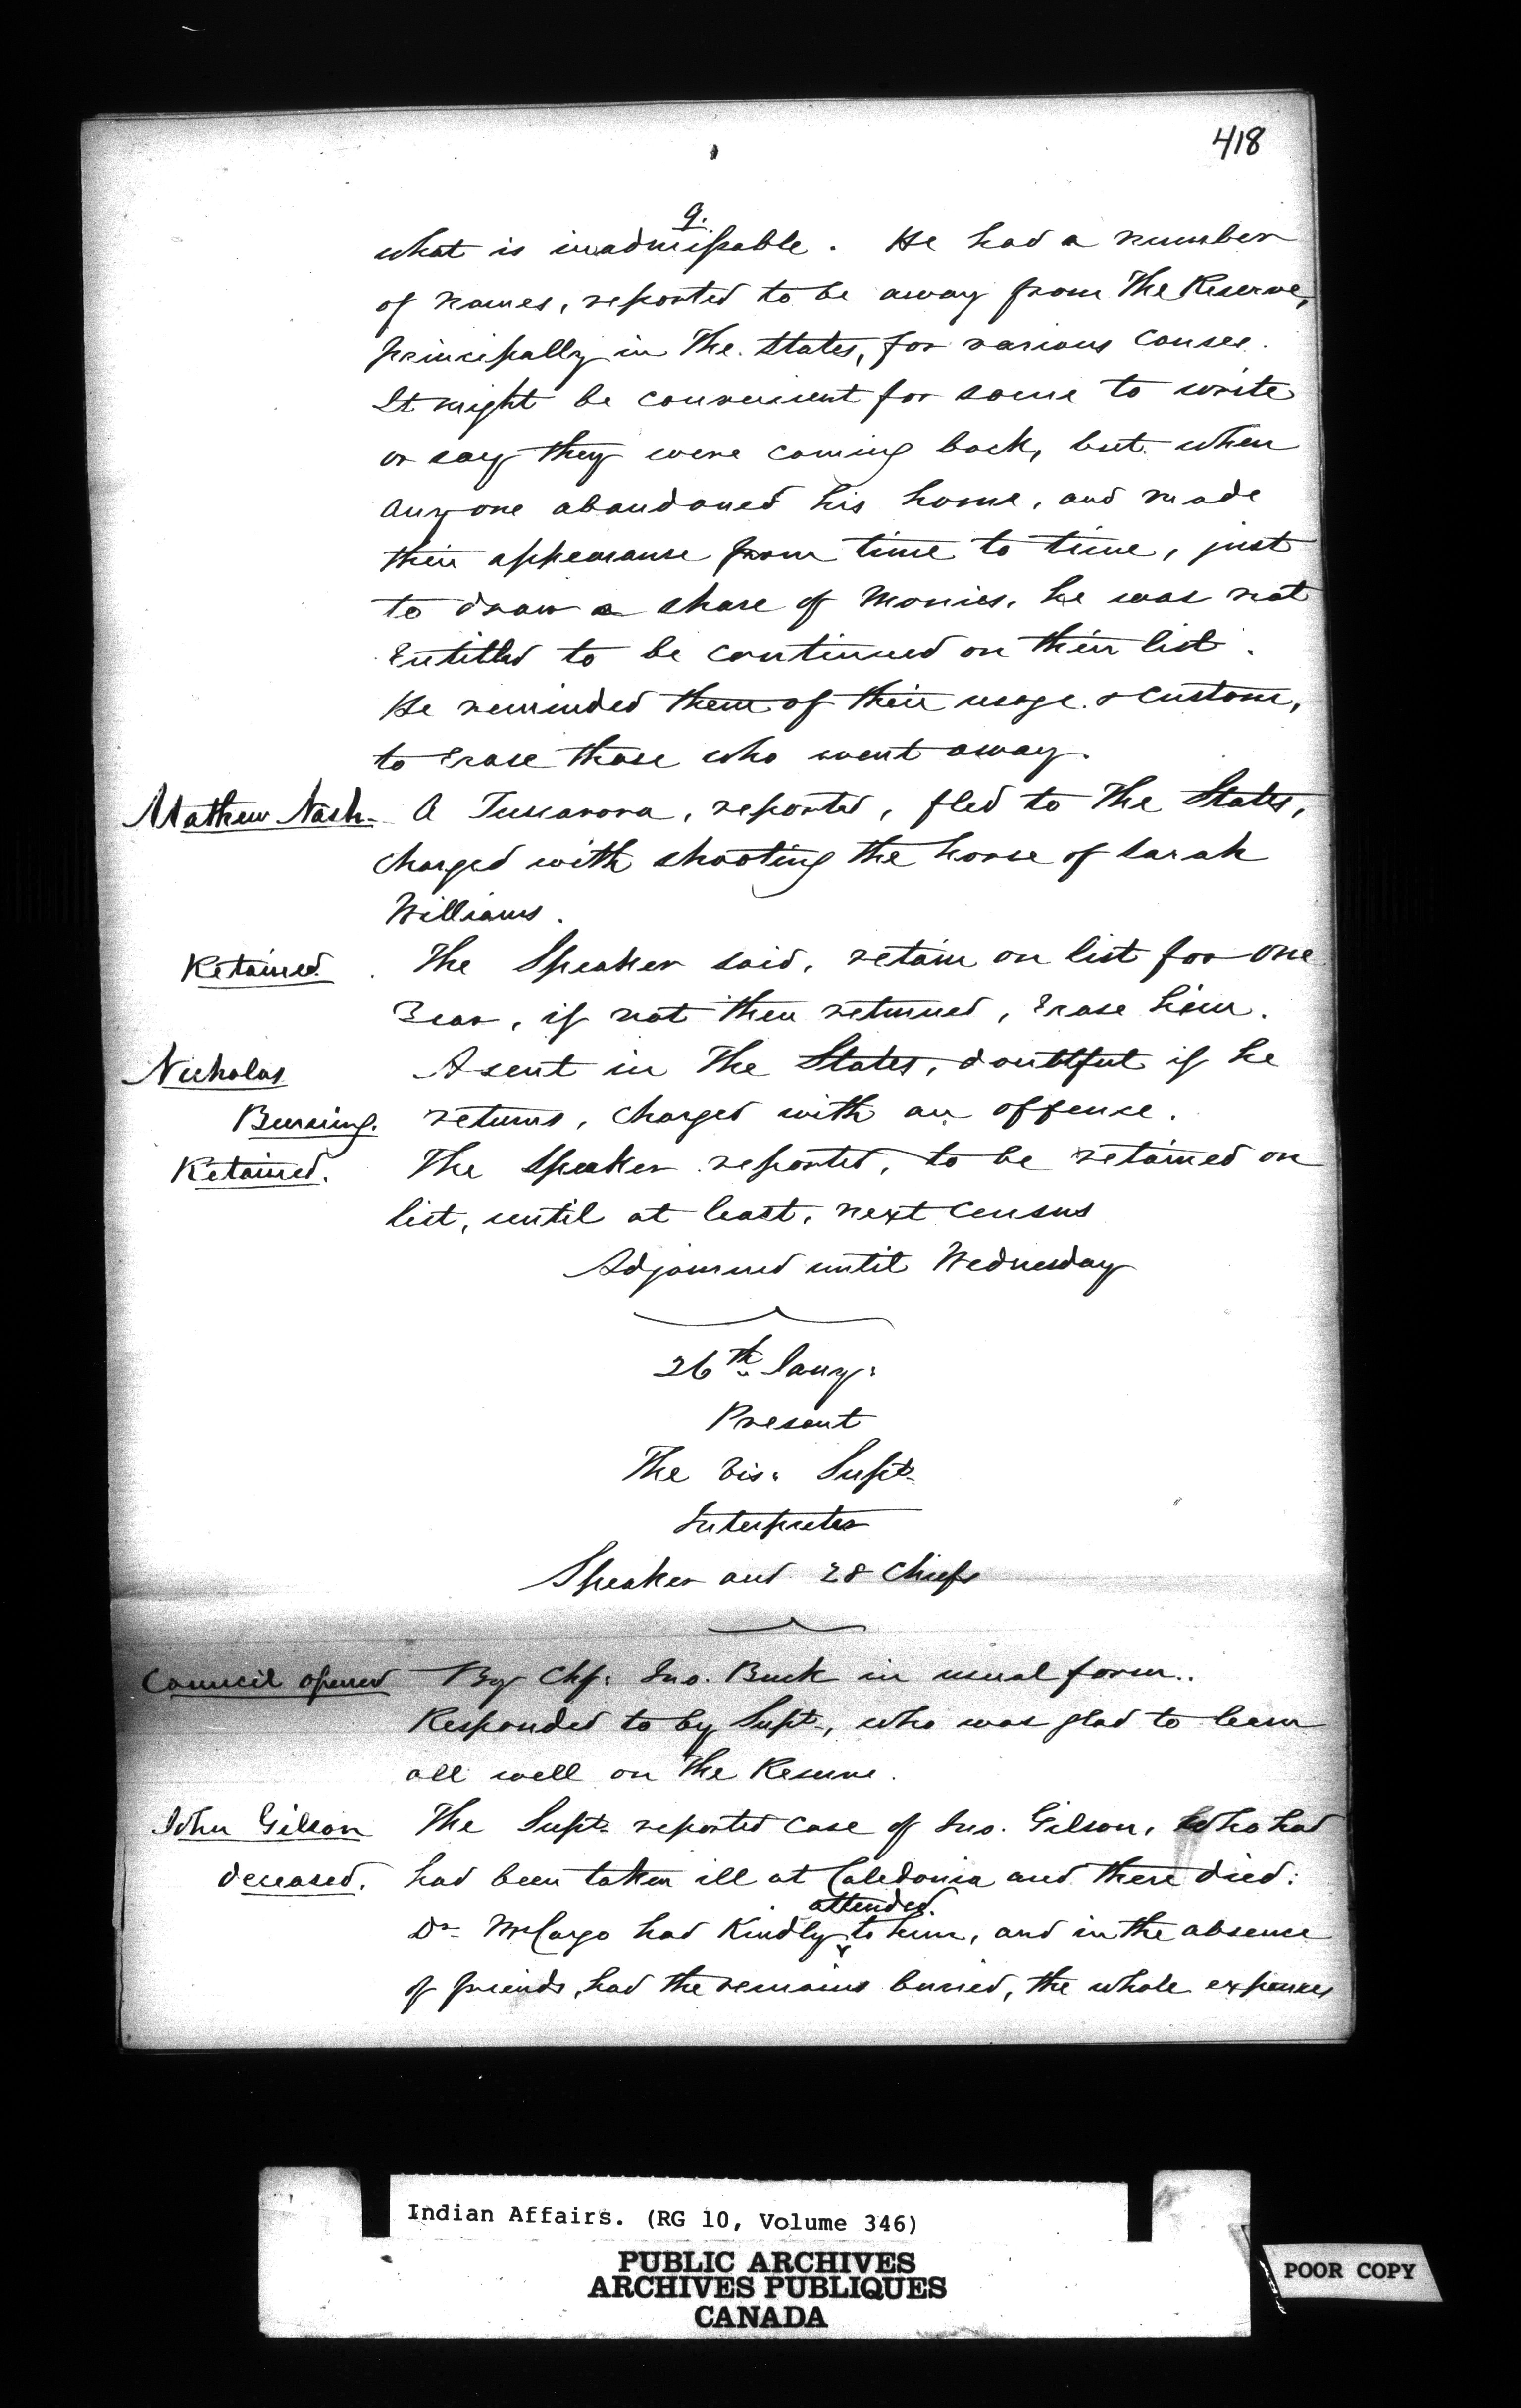 418
9.
what is inadmissable. He had a number
of names, reported to be away from The Reserve,
principally in The States, for various causes.
It might be convenient for some to write
or say they were coming back, but when
anyone abandoned his home, and made
their appearanse from time to time, just
to draw a share of Monies, he was not
Entitled to be continued on their list.
He reminded them of their usage & custom,
to Erase those who went away.
Mathew Nash- A Tuscarora, reported, fled to The States,
charged with shooting the horse of Sarah
Williams.
Retained. The Speaker said, retain on list for one
Year, if not then returned, Erase him.
Nicholas Absent in The States, doubtful if he
Burning. returns, charged with an offense.
Retained. The Speaker reported, to be retained on
list, until at least, next Census
Adjourned until Wednesday
26th Jany:
Present
The Vis: Supt-
Interpreter
Speaker and 28 Chiefs
Council opened By Chf: Jno. Buck in usual form.
Responded to by Supt-, who was glad to learn
all well on The Reserve.
John Gibson The Supt- reported case of Jno. Gibson, Who had
deceased. had been taken ill at Caledonia and there died:
attended.
Dr- McCargo had Kindly to him, and in the absence
of friends, had the remains buried, the whole expenses
Indian Affairs. (RG 10, Volume 346)
PUBLIC ARCHIVES
ARCHIVES PUBLIQUES
CANADA
POOR COPY